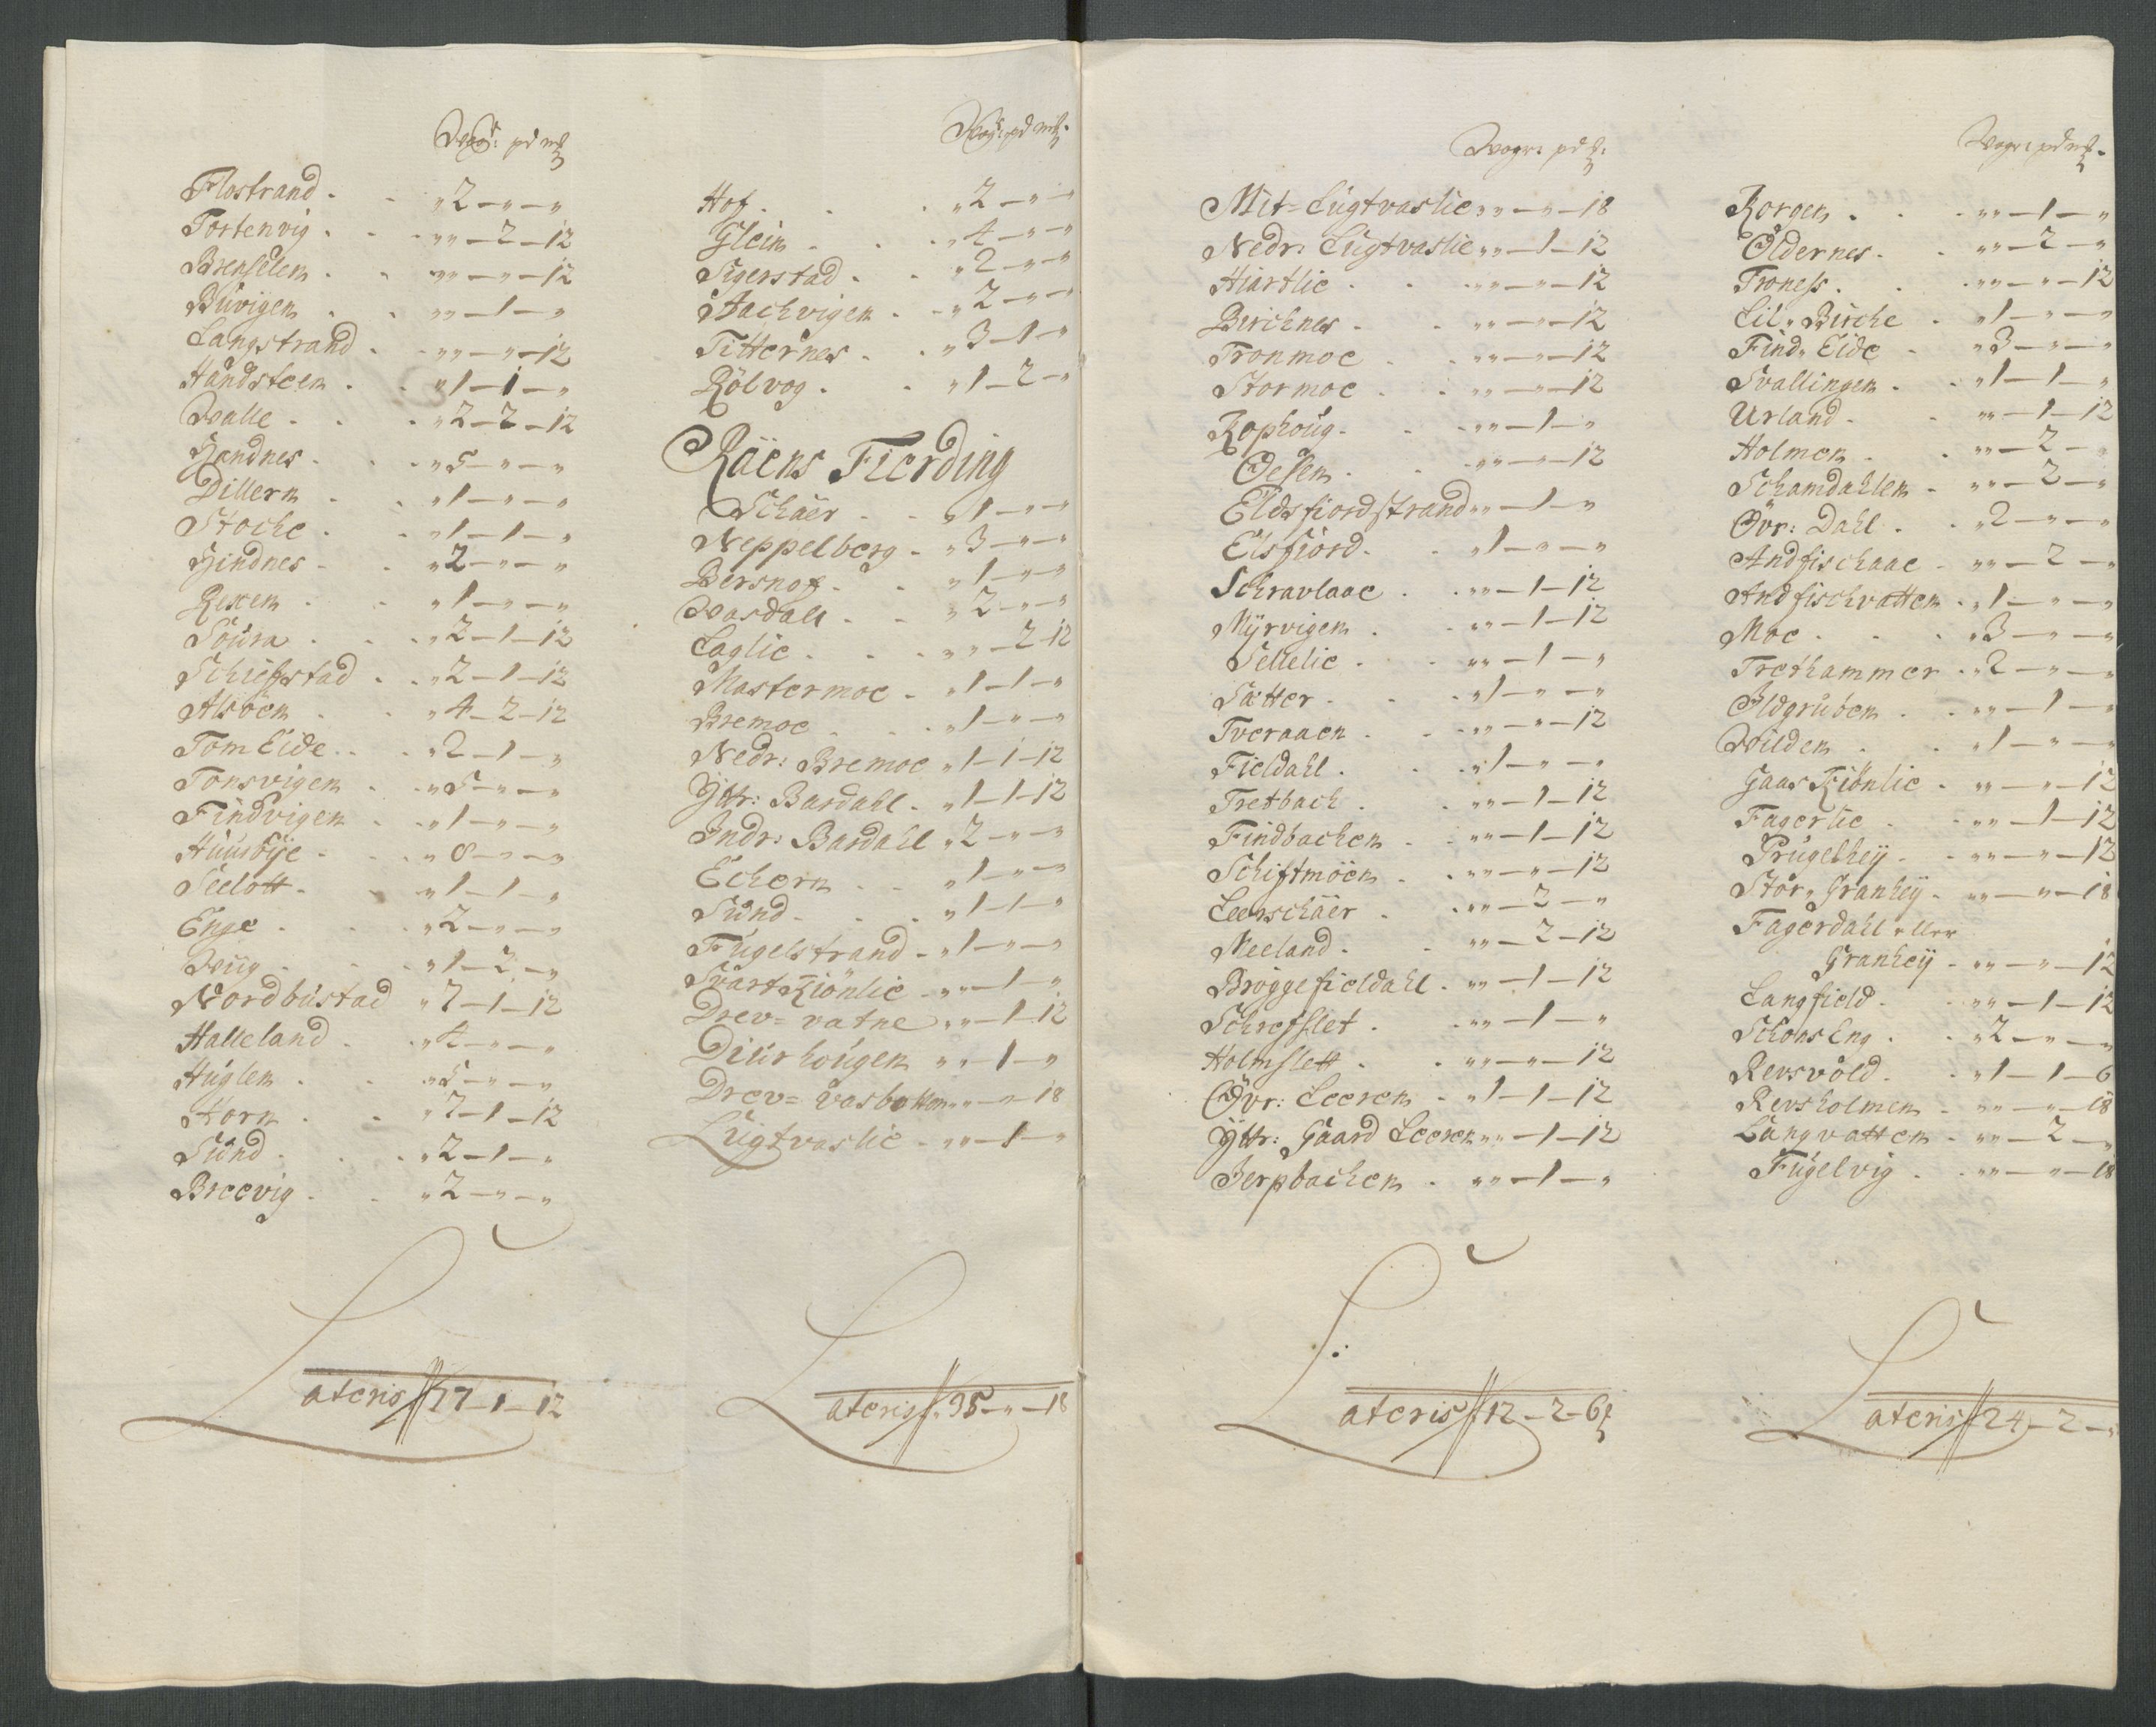 Wog: pd mk
Flostrand . . „ 2 – „ – „
Tostenvig . . „ „ – 2 – 12
Brenselem . . „ „ – „ – 12
Buvigen . . „ „ – 1 – „
Langstrand . . „ „ – „ – 12
Handsteen . . „ 1 – 1 – „
Walle . . „ 2 – 2 – 12
Handnes . . „ 5 – „ – „
Dillern . . „ 1 – „ – „
Stoche . . „ 1 – 1 – „
Hindnes . . „ 2 – „ – „
Rexem . . „ 1 – „ – „
Soura . . „ 2 – 1 – 12
Schiefstad . . „ 2 – 1 – 12
Alsoem . . „ 4 – 2 – 12
Tom Eide . . „ 2 – 1 – „
Tonsvigem . . „ 5 – „ – „
Findvigem . . „ 1 – „ – „
Huusöÿe . . „ 8 – „ – „
Seelott . . „ 1 – 1 – „
Enge . . „ 2 – „ – „
Wiig . . „ 1 – 2 – „
Nordbustad „ 7 – 1 – 12
Halleland . „ 4 – „ – „
Huglem . . „ 5 – „ – „
Horn . . „ 7 – 1 – 12
Sund . . „ 2 – 1 – „
Breevig . . „ 2 – „ – „
Lateris 77 – 1 – 12
Wog: pd mk:
Hof . . „ 2 – „ – „
Glein . . „ 4 – „ – „
Sigerstad . . „ 2 – „ – „
Aachvigen . . „ 2 – „ – „
Titternes . . „ 3 – 1 – „
Rölvog . . „ 1 – 2 – „
Raens Fierding
Schäer . . „ 1 – „ – „
Neppelberg . „ 3 – „ – „
Bersnof . . „ 1 – „ – „
Wasdall . . „ 2 – „ – „
Laglie . . „ „ – 2 – 12
Mastermoe . „ 1 – 1 – „
Bremoe . . „ 1 – „ – „
Nedr: Bremoe „ 1 – 1 – 12
Ÿttr: Bardahl . „ 1 – 1 – 12
Indr: Bardahl „ 2 – „ – „
Echorn . . „ 1 – „ – „
Sund . . „ 1 – 1 – „
Fugelstrand . „ 1 – „ – „
Svart Kiönlie . „ „ – 1 – „
Drev= vatne „ „ – 1 – 12
Diürhougen „ „ – 1 – „
Drev= vasbotten „ „ – „ – 18
Lügtvaslie . „ „ – 1 – „
Lateris 95 – „ – 18
Wogr: pd k:
Mit=Lügtvaslie „ „ – „ – 18
Nedr: Lügtvaslie „ „ – 1 – 12
Hiartlie . . „ „ – „ – 12
Birchnes . . „ „ – „ – 12
Tronmoe . . „ „ – „ – 12
Stormoe . . „ „ – „ – 12
Rophoug . . „ „ – 1 – „
Oesem . . „ „ – „ – 12
Eldsfiordstrand „ „ – 1 – „
Elsfiord . . „ 1 – „ – „
Schravlaae . . „ „ – 1 – 12
Mÿrvigem . . „ „ – 1 – 12
Sellelie . . „ „ – 1 – „
Sætter . . „ 1 – „ – „
Tveraaen . . „ „ – „ – 12
Fieldahl . . „ 1 – „ – „
Tretbach . . „ „ – 1 – 12
Findbachem . . „ „ – 1 – 12
Schiftmöem . . „ „ – „ – 12
Leerschäer . . „ „ – 2 – „
Neeland . . „ „ – 2 – 12
Bröggefieldahl . „ „ – 1 – 12
Schrefslet . . „ „ – 1 – „
Holmslett . . „ „ – „ – 12
Øvr: Leerem . „ 1 – 1 – 12
Ÿttr: Gaard Leerem „ „ – 1 – 12
Jerpbachem . „ „ – 1 – „
Lateris 12 – 2 – 6
Wogr: pd mk.
Korgem . . „ „ – 1 – „
Oldernes . . „ „ – 2 – „
Troness . . „ „ – „ – 12
Lil„ Birche . „ 1 – „ – „
Find„ Eide . „ 3 – „ – „
Svallingem . . „ 1 – 1 – „
Urland . . „ „ – 1 – 12
Holmem . . „ „ – 2 – „
Schamdahlem . „ „ – 2 – „
Övr: Dahl . . „ 2 – „ – „
Andfischaae . „ „ – 2 – „
Andfischvattem . „ 1 – „ – „
Moe . . „ 3 – „ – „
Trethammer . „ 2 – „ – „
Ildgrubem . . „ „ – 1 – „
Wildem . . „ 1 – „ – „
Gaas Kiönlie . „ „ – „ – 12
Fagerlie . . „ „ – 1 – 12
Prügelheÿ . . „ „ – „ – 12
Stor„ Granheÿ . „ „ – „ – 18
Fagerdahl eller
Granheÿ . „ „ – „ – 12
Langfield . . „ „ – 1 – 12
Schons Eng . . „ 2 – „ – „
Revsvold . . „ 1 – 1 – 6
Revsholmem . „ „ – „ – 18
Langvattem . „ „ – 2 – „
Fugelvig . . „ „ – „ – 18
Lateris 24 – 2 – „